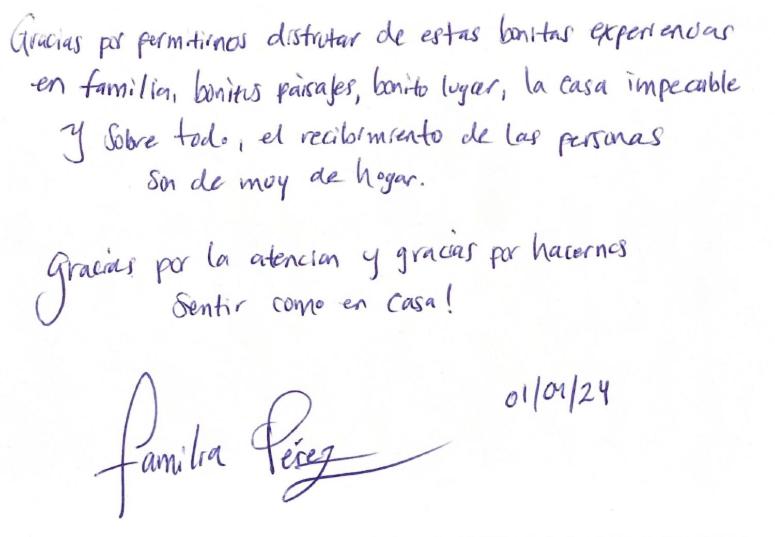 Gracias por permitirnos disfrutar de estas bonitas experiencias
en familia, bonitos paisajes, bonito lugar, la casa impecable
y sobre todo, el recibimiento de las personas
son de muy de hogar.
Gracias por la atencion y gracias por hacernos
sentir como en casa!
Familia Pérez
01/01/24